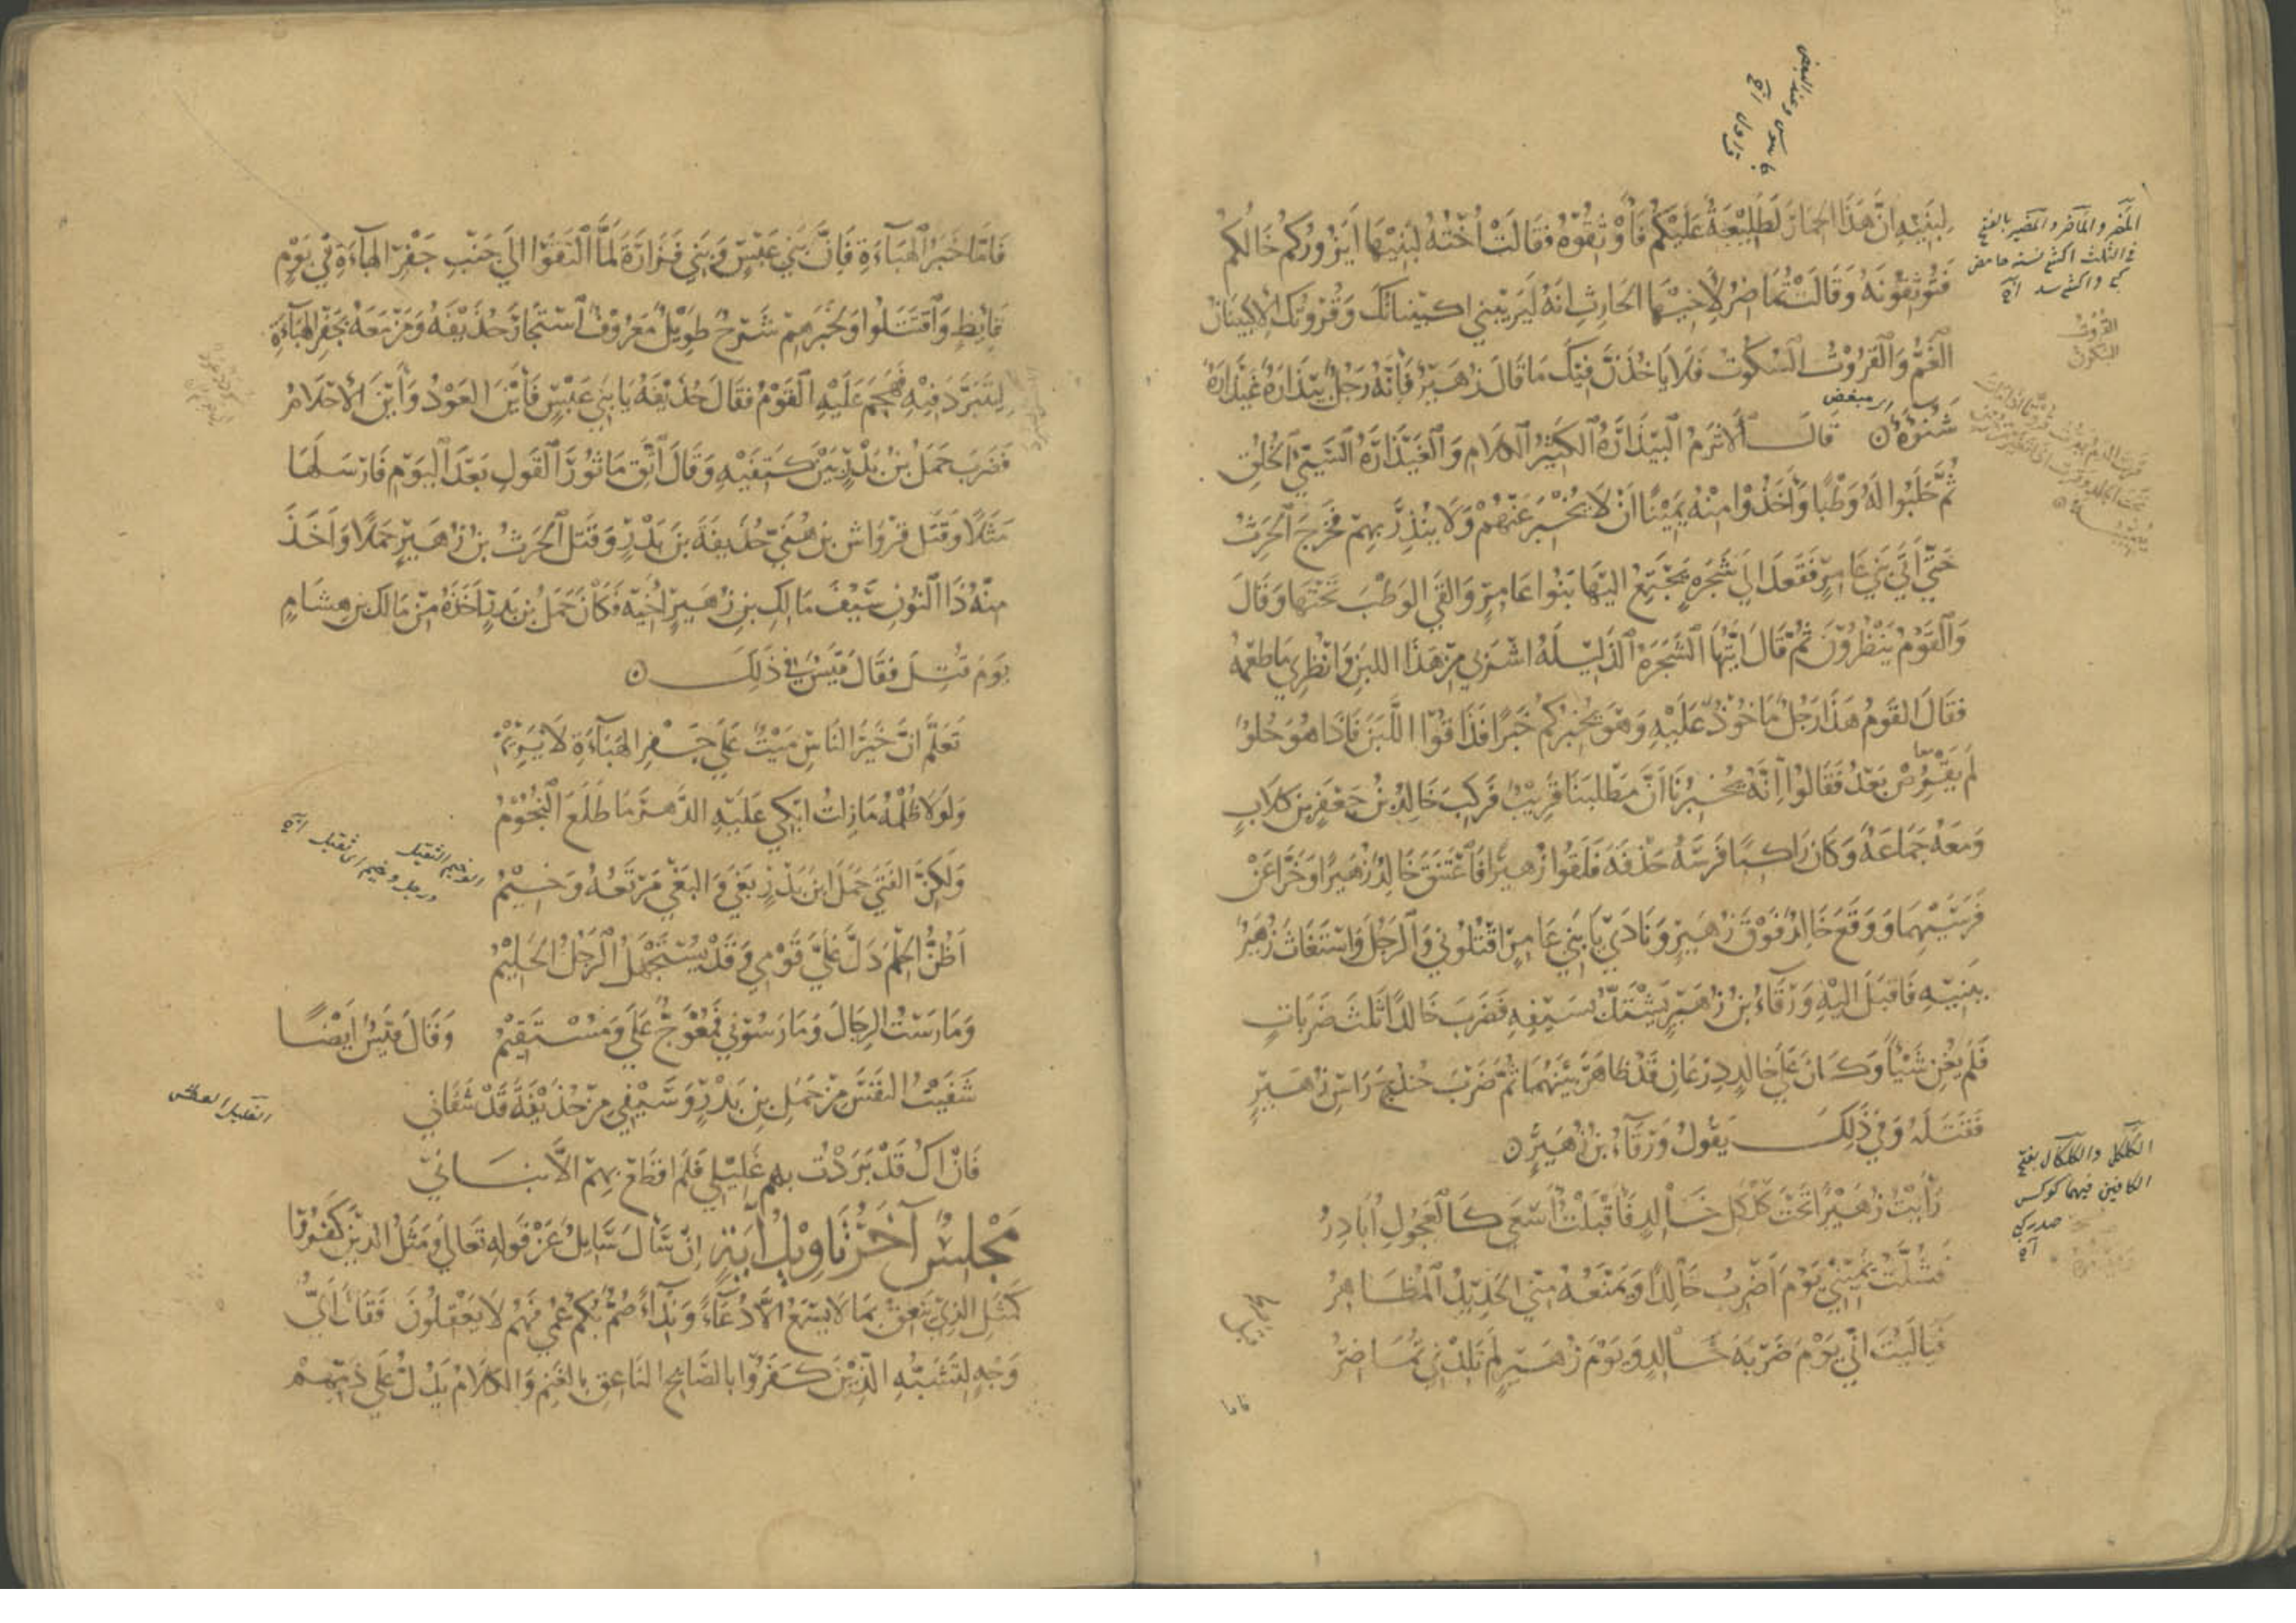 لِبَنِيهِ انَّ هَذَا الحِمَارَ لَطَلِيْعَةٌ عَلَيْكُمْ فَأَوْثِقُوْهُ فقَالَتْ أُخْتُهُ لبَنِيْهَا أيَزُورُكُمْ خَالُكُمْ
فَتُوْثِقُوْنَهُ وَقَالَتْ تُمَاضِرُ لأَخِيْهَا الحَارِثِ انَّهُ لَيَرِيْبُنِي اكبِيْنَانُكَ وَقُرُوْتُكَ الاكبِيْنَانُ
الغَمُّ وَالقُرُوْتُ السُّكُوْتُ فَلَا يَاخُذَنَّ فِيْكَ مَا قَالَ زُهَيْرٌ فَإنَّهُ رَجُلٌ بَيْذَارَةٌ غَيْذَارَةٌ
شَنُوْءَةٌ قَالَ الأَثرَمُ البَيْذَارَةُ الكَثِيْرُ الكَلَامِ وَالغَيْذَارَةُ السَّيِّئُ الخُلُقِ
ثُمَّ حَلَبُوا لَهُ وَطْبًا وَأَخَذُوْا مِنْهُ يَمِيْنًا أنْ لَا يُخْبِرَ عَنْهُمْ وَلَا يُنْذِرَ بِهِمْ فخَرَجَ الحَرِثُ
حَتَّى أَتَى بَنِي عَامِرٍ فَقَعَدَ الَى شَجَرَةٍ يَجْتَمِعُ اليْهَا بَنُوا عَامِرٍ وَالقَى الوَطْبَ تَحْتَهَا وَقَالَ
وَالقَوْمُ يَنْظُرُوْنَ ثُمَّ قَالَ ايَّتُهَا الشَّجَرَةُ الذَّلِيْلَةُ اشْرَبِي مِنْ هَذَا اللبَنِ وَانْظُرِي مَا طَعْمُهُ
فقَالَ القَوْمُ هَذَا رَجُلٌ مَاخُوْذٌ عَلَيْهِ وَهُوَ يُخْبِرُكُمْ خَبَرًا فَذَاقُوْا اللَّبَنَ فَاذَا هُوَ حُلْوٌ
لَمْ يَقْرُصْ بَعْدُ فَقَالُوْا إنَّهُ يُخْبِرُنَا أنَّ مَطْلَبَنَا قَرِيْبٌ فرَكِبَ خَالِدُ بْنُ جَعْفَرِ بن كِلَابٍ
وَمَعَهُ جَمَاعَةٌ وَكَانَ رَاكِبًا فَرَسَهُ حَذْفَةَ فَلَقُوا زُهَيْرًا فَاعْتَنَقَ خَالِدٌ زُهَيْرًا وَخَرَّا عَنْ
فَرَسَيْهِمَا وَوَقَعَ خَالِدٌ فَوْقَ زُهَيْرٍ وَنَادَى يَا بَنِي عَامِرٍ اقْتُلُونِي وَالرَّجُلَ وَاسْتَغَاثَ زُهَيْرٌ
بِبَنِيْهِ فَاقبَلَ اليْهِ وَرْقَآءُ بْنُ زُهَيْرٍ يَشْتَدُّ بِسَيْفِهِ فَضَرَبَ خَالِدًا ثَلَثَ ضَرَبَاتٍ
فَلَمْ يُغْنِ شَيْئًا وَكَانَ عَلَى خَالِدٍ دِرْعَانِ قَدْ ظَاهَرَ بَيْنَهُمَا ثُمَّ ضَرَبَ حُنْدُجٌ رَاسَ زُهَيْرٍ
فَقَتَلَهُ وَفِي ذَلِكَ يَقُولُ وَرْقَآءُ بْنُ زُهَيْرٍ
رَأَيْتُ زُهَيْرًا تَحْتَ كَلْكَلِ خَالِدٍ فَأَقْبَلْتُ أَسْعَى كَالعَجُولِ أُبَادِرُ
فَشُلَّتْ يَمِيْنِي يَوْمَ أَضْرِبُ خَالِدًا وَيَمْنَعُهُ مِنِّي الحَدِيْدُ المُظَاهِرُ
فَيَالَيْتَ انِّي يَوْمَ ضَرْبَةِ خَالِدٍ وَيَوْمَ زُهَيْرٍ لَمْ تَلِدْنِي تُمَاضِرُ
فاما
القُرُوتُ
السكوتُ
الكَلْكَلُ والكَلْكَالُ بفتح
الكافين فيهما كوكس
صدر كبى
فَامَّا خَبَرُ الهَبَآءَةِ فَإنَّ بَنِي عَبْسٍ وَبَنِي فَزَارَةَ لَمَّا التَقَوْا الَى جَنْبِ جَفْرِ الهَبَآءَةِ فِي يَوْمٍ
قَائِظٍ وَاقتَتَلُوا وَلخَبَرِهِمْ شَرْحٌ طَوِيْلٌ مَعْرُوْفٌ اسْتَجَارَ حُذَيْفَةُ وَمَنْ مَعَهُ بِجَفْرِ الهَبَآءَةِ
لِيَتَبَرَّدَ فِيْهِ فَهَجَمَ عَلَيْهِ القَوْمُ فقَالَ حُذَيْفَةُ يَا بَنِي عَبْسٍ فَأيْنَ العَوْدُ وَأيْنَ الأَحْلَامُ
فَضَرَبَ حَمَلُ بْنُ بَدْرٍ بَيْنَ كَتِفَيْهِ وَقَالَ اتَّقِ مَاثُوْرَ القَوْلِ بَعْدَ اليَوْمِ فَارْسَلَهَا
مَثَلًا وَقَتَلَ قِرْوَاشُ بن هُنَيٍّ حُذَيفَةَ بنَ بَدْرٍ وَقَتَلَ الحَرِثُ بنُ زُهَيْرٍ حَمَلًا وَأَخَذَ
مِنْهُ ذَا النُّونِ سَيْفَ مَالِكِ بنِ زُهَيْرٍ أَخِيْهِ وَكَانَ حَمَلُ بْنُ بَدْرٍ أَخَذَهُ مِنْ مَالِكِ بنِ هِشَامٍ
يَوْمَ قُتِلَ فقَالَ قَيْسٌ فِي ذَلِكَ
تَعَلَّمْ أنَّ خَيْرَ النَّاسِ مَيْتٌ عَلَى جَفْرِ الهَبَآءَةِ لَا يَرِيْمُ
وَلَوْلَا ظُلْمُهُ مَا زِلْتُ ابْكِي عَلَيْهِ الدَّهْرَ مَا طَلَعَ النُّجُوْمُ
وَلَكِنَّ الفَتَى حَمَلَ ابنَ بَدْرٍ بَغَى وَالبَغْيُ مَرْتَعُهُ وَخِيْمُ
أظُنُّ الحِلْمَ دَلَّ عَلَيَّ قَوْمِي وَقَدْ يُسْتَجْهَلُ الرَّجُلُ الحَلِيْمُ
وَمَارَسْتُ الرِجَالَ وَمَارَسُوْنِي فَمُعْوَجٌّ عَلَيَّ وَمُسْتَقِيْمُ وَقَالَ قَيْسٌ أَيْضًا
شَفَيْتُ النَّفْسَ مِنْ حَمَلِ بنِ بَدْرٍ وَسَيْفِي مِنْ حُذَيْفَةَ قَدْ شَفَانِي
فَانْ اكُ قَدْ بَرَدْتُ بِهِمْ غَلِيْلِي فَلَمْ اقطَعْ بِهِمْ الَّا بَنَانِي
مَجْلِسٌ آخَرُ تَأوِيْلُ آيَةٍ انْ سَأَلَ سَايِلٌ عَنْ قَولِهِ تَعَالَى وَمَثَلُ الذِيْنَ كَفَرُوْا
كَمَثَلِ الذِيْ يَنْعِقُ بِمَا لَا يَسْمَعُ الَّا دُعَآءً وَنِدَآءً صُمٌّ بُكْمٌ عُمْيٌ فَهُمْ لَا يَعْقِلُونَ فَقَالَ أَيُّ
وَجْهٍ لِتَشْبِيْهِ الَّذِيْنَ كَفَرُوْا بِالصَّايِحِ النَّاعِقِ بِالغَنَمِ وَالكَلَامُ يَدُلُّ عَلَى ذَمِّهِمْ
الوخيم الثقيل
ورجل وخيم اى ثقيل
الغليل العطش